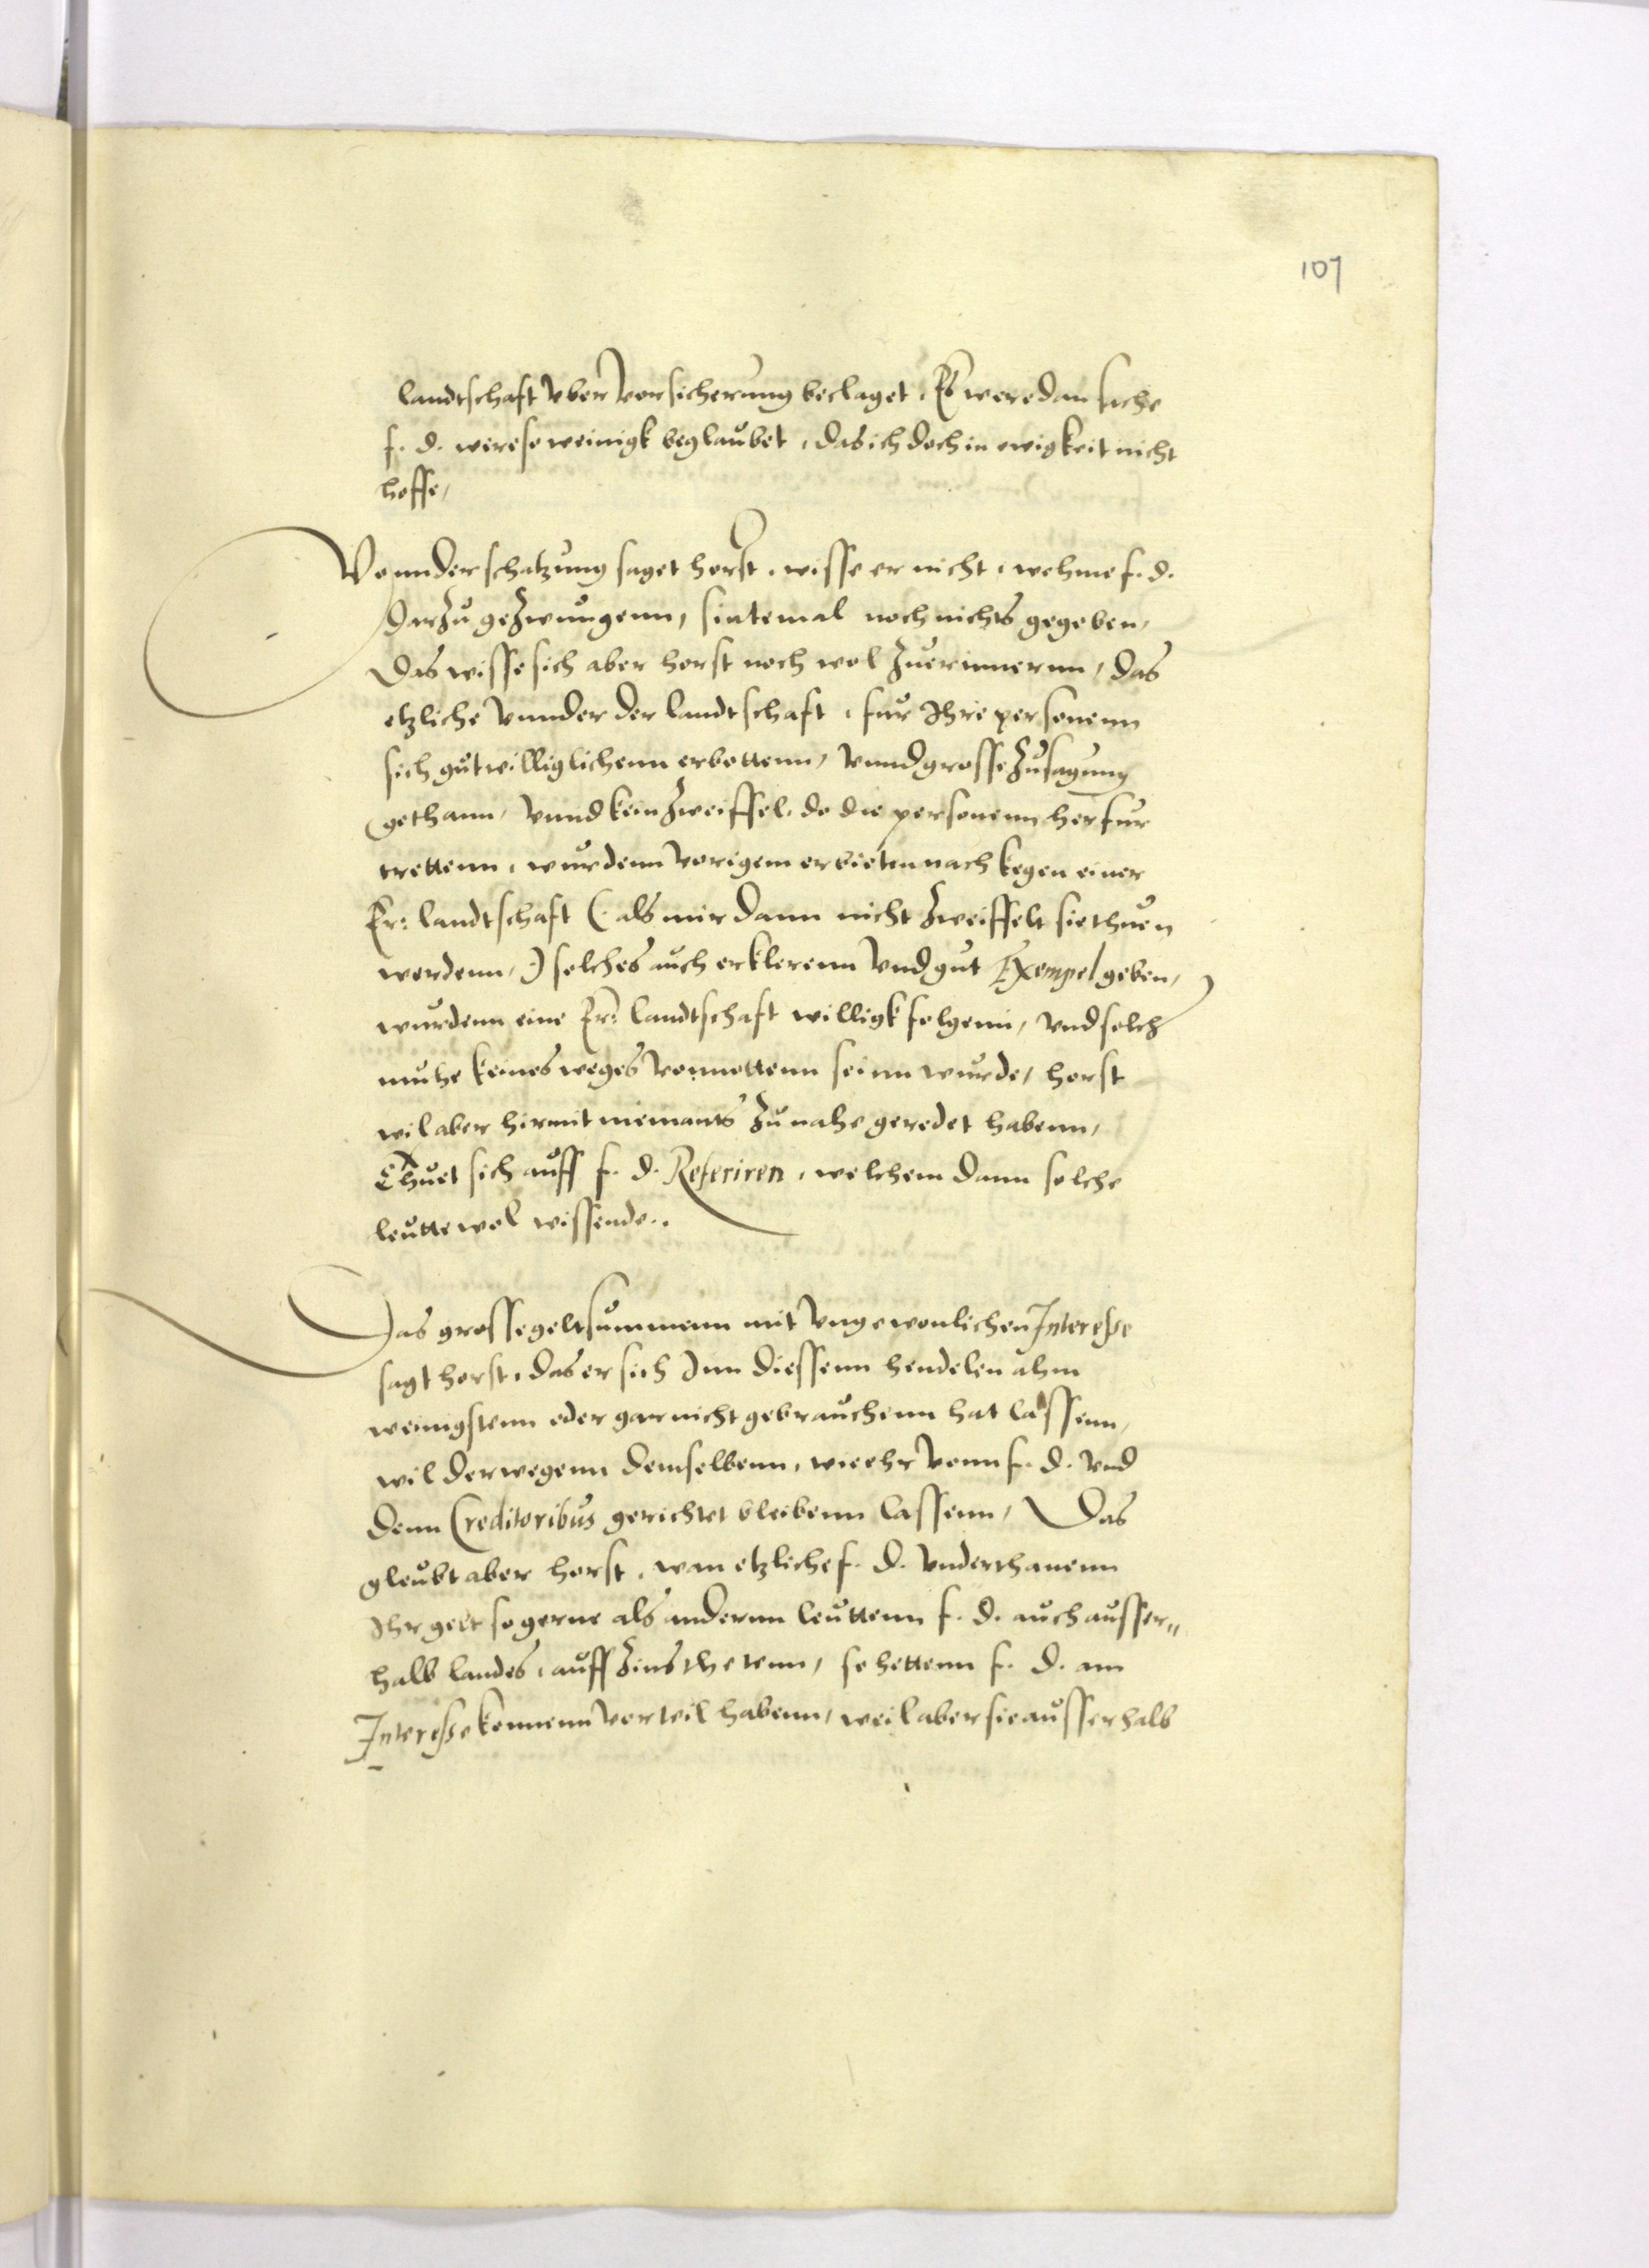 107
landtschaft vber vorsicherung beclaget, Es were dan sache
f. d. were so weinigk beglaubet, das ich doch in ewigkeit nicht
hoffe,
Vonn der schatzung saget horst, wisse er nicht, wehme f. d.
darzu gezwungenn, sintemal noch nichts gegeben,
Das wisse sich aber horst noch wol zuerinnernn, das
etzliche vnnder der landtschaft, fur Ihre personenn
sich gutwilliglichenn erbottenn, vnnd grosse zusagung
gethann, vnnd kein zweiffel, do die personenn herfur
trettenn, wurdenn vorigem erbieten nach kegen einer
Er: landtschaft (: als mir dann nicht zweiffelt sie thuen
werdenn, :) solches auch erklerenn vnd gut Exempel geben,
wurdenn eine Er: landtschaft willigk folgenn, vnd solch
muhe keines weges vonnottenn seinn wurde, horst
wil aber hirmit niemants zu nahe geredet habenn,
Thuet sich auff f. d. Referiren, welchem dann solche
leutte wol wissende..
Das grosse geltsummenn mit vngewonlichen Interesse
sagt horst, das er sich Inn diessenn hendelen ahm
weinigstenn oder gar nicht gebrauchenn hat lassenn,
wil derwegenn demselbenn, wie ehr vonn f. d. vnd
denn Creditoribus gerichtet bleibenn lassenn, Das
gleubt aber horst, wan etzliche f. d. vnderthanenn
Ihr gelt so gerne als andernn leuttenn f. d. auch ausser„
halb landes, auff zins thetenn, so hettenn f. d. am
Interesse konnenn vorteil habenn, weil aber sie ausserhalb